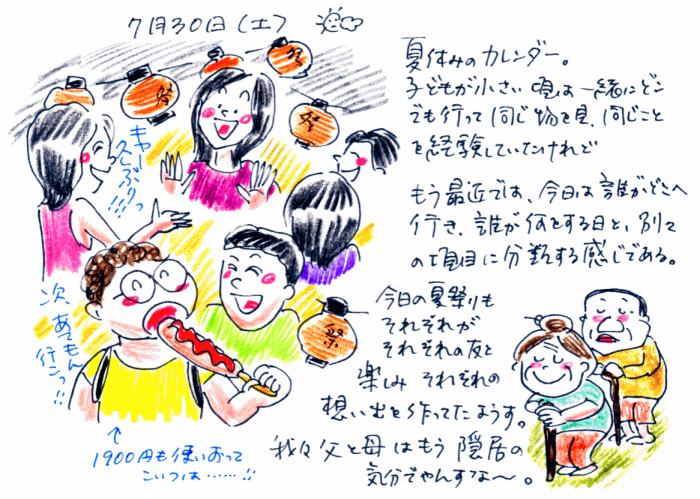 7月30日(土)
夏休みのカレンダー。
子どもが小さい頃は一緒にどこ
でも行って同じ物を見、同じこと
を経験していたけれど
もう最近では、今日は誰がどこへ
行き、誰が何をする日と、別々
の項目に分割する感じである。
今日の夏祭りも
それぞれが
それぞれの友と
楽しみ それぞれの
想い出を作ってたようす。
我々父と母はもう隠居の
気分でやんすな〜。
キャー
久しぶりっ!!!
次、あてもん
行こっ!!
祭
祭
祭
祭
↑
1900円も使いおって
こいつは……!!